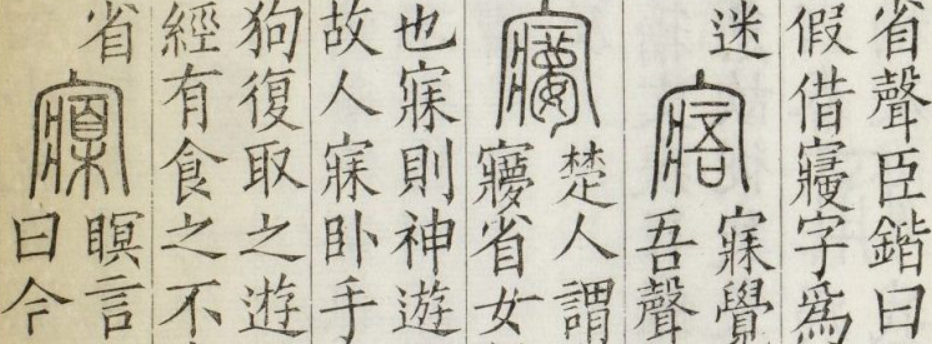 省聲臣鍇曰
假借寢字爲
迷
寤
寐覺
吾聲
㝥
楚人謂
㝱省女
也寐則神遊
故人寐卧手
狗復取之遊
經有食之不
省
寱
瞑言
曰今